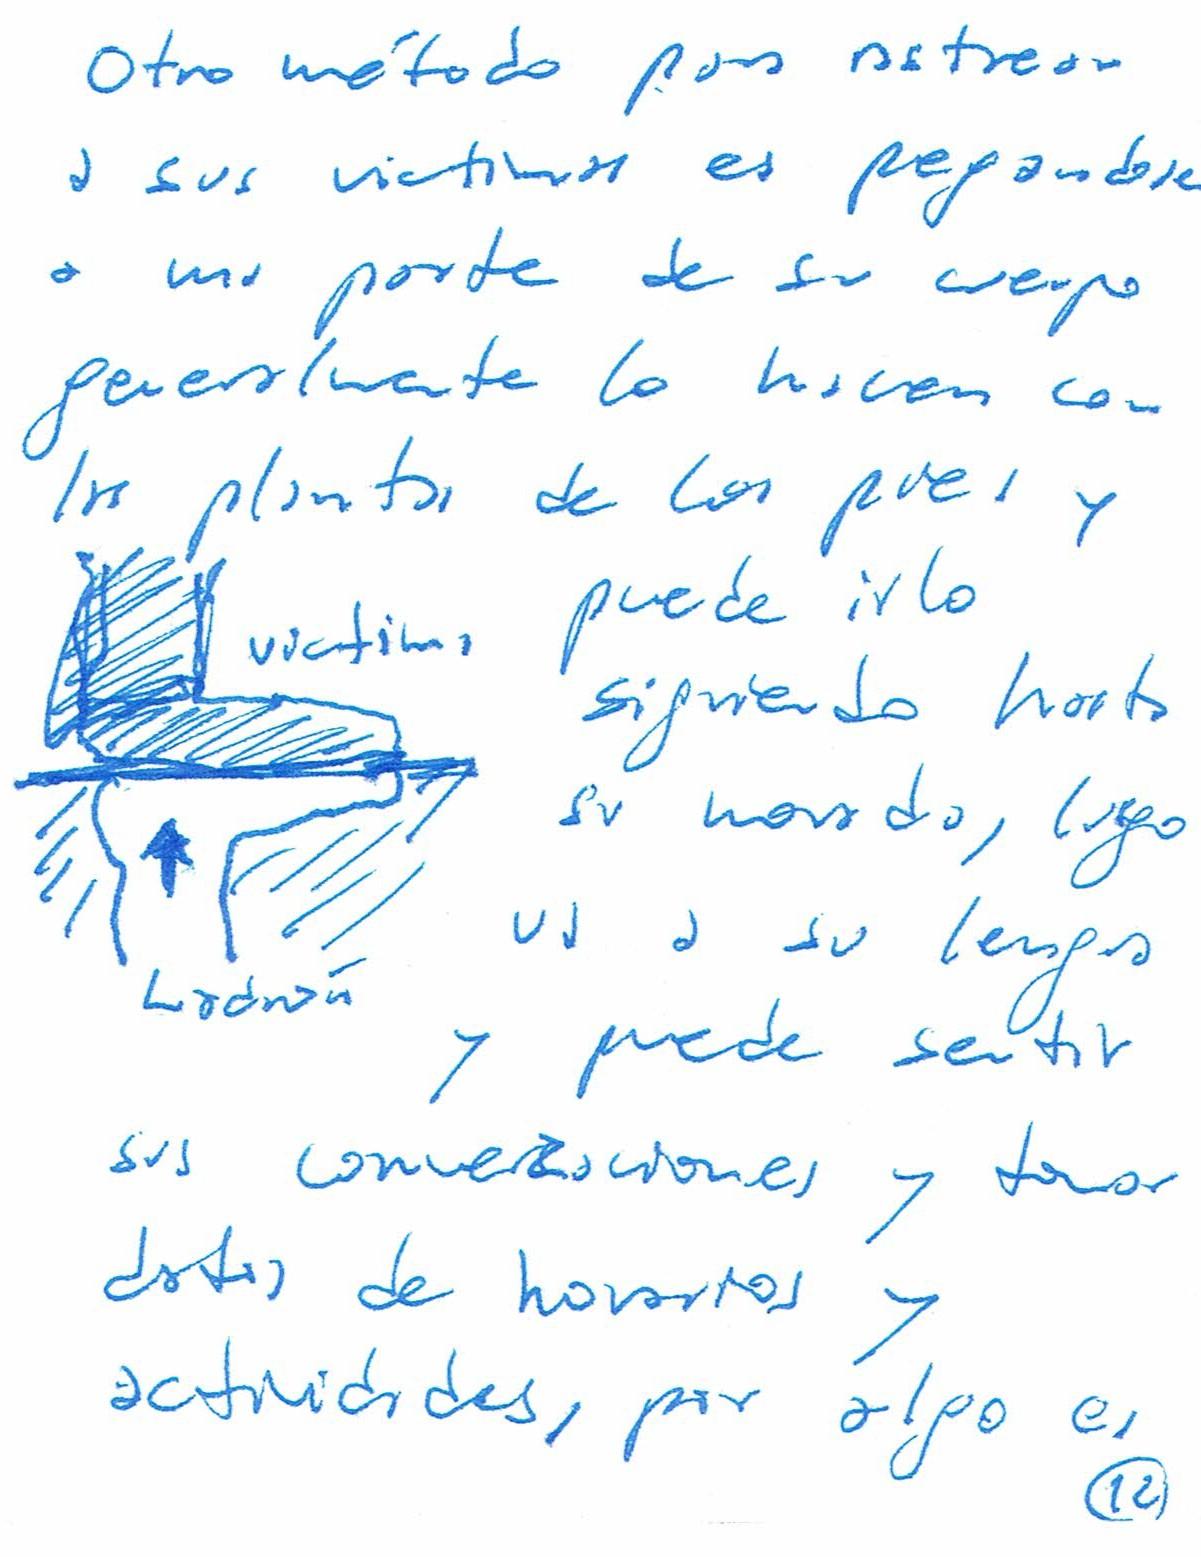 Otro método para rastrear
a sus victimas es pegandose
a una parte de su cuerpo
generalmente lo hacen con
las plantas de los pies y
victima
puede irlo
siguiendo hasta
su morada, luego
va a su lengua
Ladrón
y puede sentir
sus converzaciones y tomar
datos de horarios y
actividades, por algo es
12